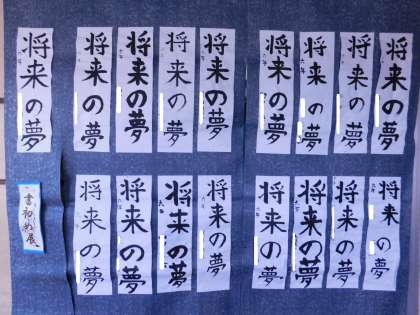 将来の夢
将来の夢
将来の夢
将来の夢
将来の夢
将来の夢
将来の夢
将来の夢
将来の夢
書初め展
将来の夢
将来の夢
将来の夢
将来の夢
将来の夢
将来の夢
将来の夢
将来の夢